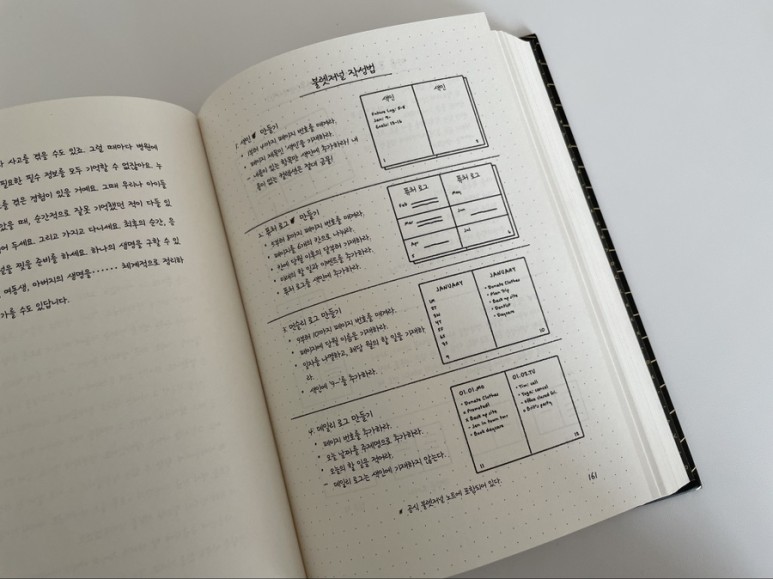 사고를 겪을 수도 있죠. 그럴 때마다 병원에
필요한 필수 정보를 모두 기억할 수 없잖아요. 누
를 겪은 경험이 있을 거예요. 그때 우리나 아이들
았을 때, 순간적으로 잘못 기억했던 적이 다들 있
어 두세요. 그리고 가지고 다니세요. 최후의 순간, 응
을 찢을 준비를 하세요. 하나의 생명을 구할 수 있
여동생, 아버지의 생명을…… 체계적으로 정리하
가올 수도 있답니다.
불렛저널 작성법
1. 색인 만들기
• 1부터 4까지 페이지 번호를 매겨라.
• 페이지 제목인 '색인'을 기재하라.
– 내용이 있는 항목만 색인에 추가하라! 내
용이 없는 항목은 절대 금물!
색인
색인
Future Log: 5-8
Jan: 9-
Goals: 13-16
1
4
2. 퓨처 로그 만들기
• 5부터 8까지 페이지 번호를 매겨라.
• 페이지를 6개의 칸으로 나눠라.
• 칸에 당월 이후의 달부터 기재하라.
• 미래의 할 일과 이벤트를 추가하라.
• 퓨처 로그를 색인에 추가하라.
퓨처 로그
퓨처 로그
Feb
May
Mar
Jun
Apr
Jul
5
6
3. 먼슬리 로그 만들기
• 9부터 10까지 페이지 번호를 매겨라.
• 페이지에 당월 이름을 기재하라.
• 일자를 나열하고, 해당 월의 할 일을 기재하
라.
• 색인에 '9~'를 추가하라.
JANUARY
JANUARY
• Donate Clothes
• Plan Trip
• Back up site
• Dentist
• Daycare
9
10
4. 데일리 로그 만들기
• 페이지 번호를 추가하라.
• 오늘 날짜를 주제명으로 추가하라.
• 오늘의 할 일을 적어라.
– 데일리 로그는 색인에 기재하지 않는다.
01.01.MO
01.02.TU
• Donate Clothes
Promoted!
Back up site
– Jen in town tmr
• Book daycare
• Tim: call
• Yoga: cancel
– office closed fri.
party
11
12
공식 불렛저널 노트에 포함되어 있다.
161